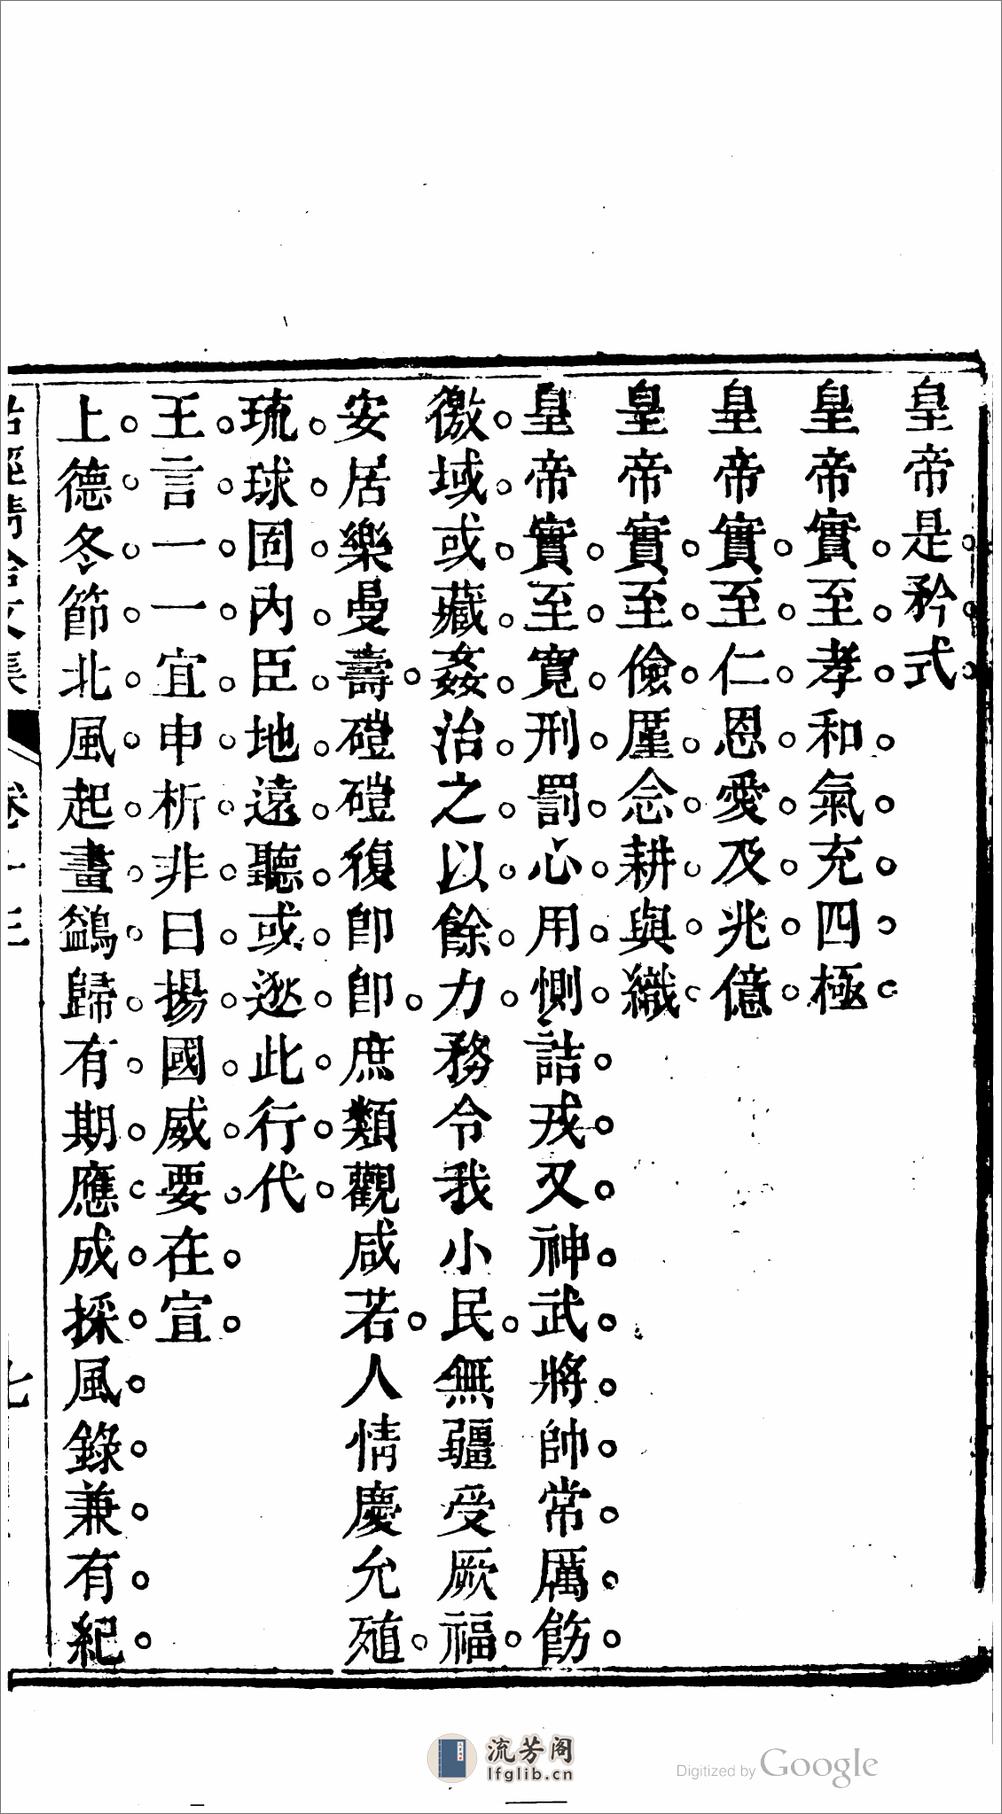 皇帝是矜式
皇帝實至孝和氣充四極
皇帝實至仁恩愛及兆億
皇帝實至儉厪念耕與織
皇帝實至寬刑罰心用惻詰戎又神武將帥常厲飭
徼域或藏姦治之以餘力務令我小民無疆受厥福
安居樂曼壽磑磑復卽卽庶類觀咸若人情慶允殖
琉球固內臣地遠聽或逖此行代
王言一一宜申析非曰揚國威要在宣
上德冬節北風起畫鷁歸有期應成採風錄兼有紀
詁經精舍文集
卷十三
七
流芳阁
lfglib.cn
Digitized by Google